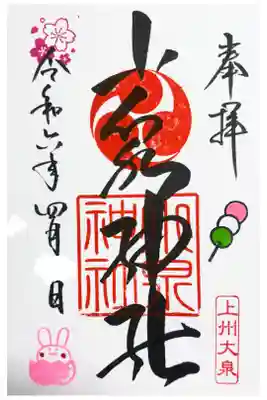 奉拝
上州大泉
小泉神社
令和六年四月 日